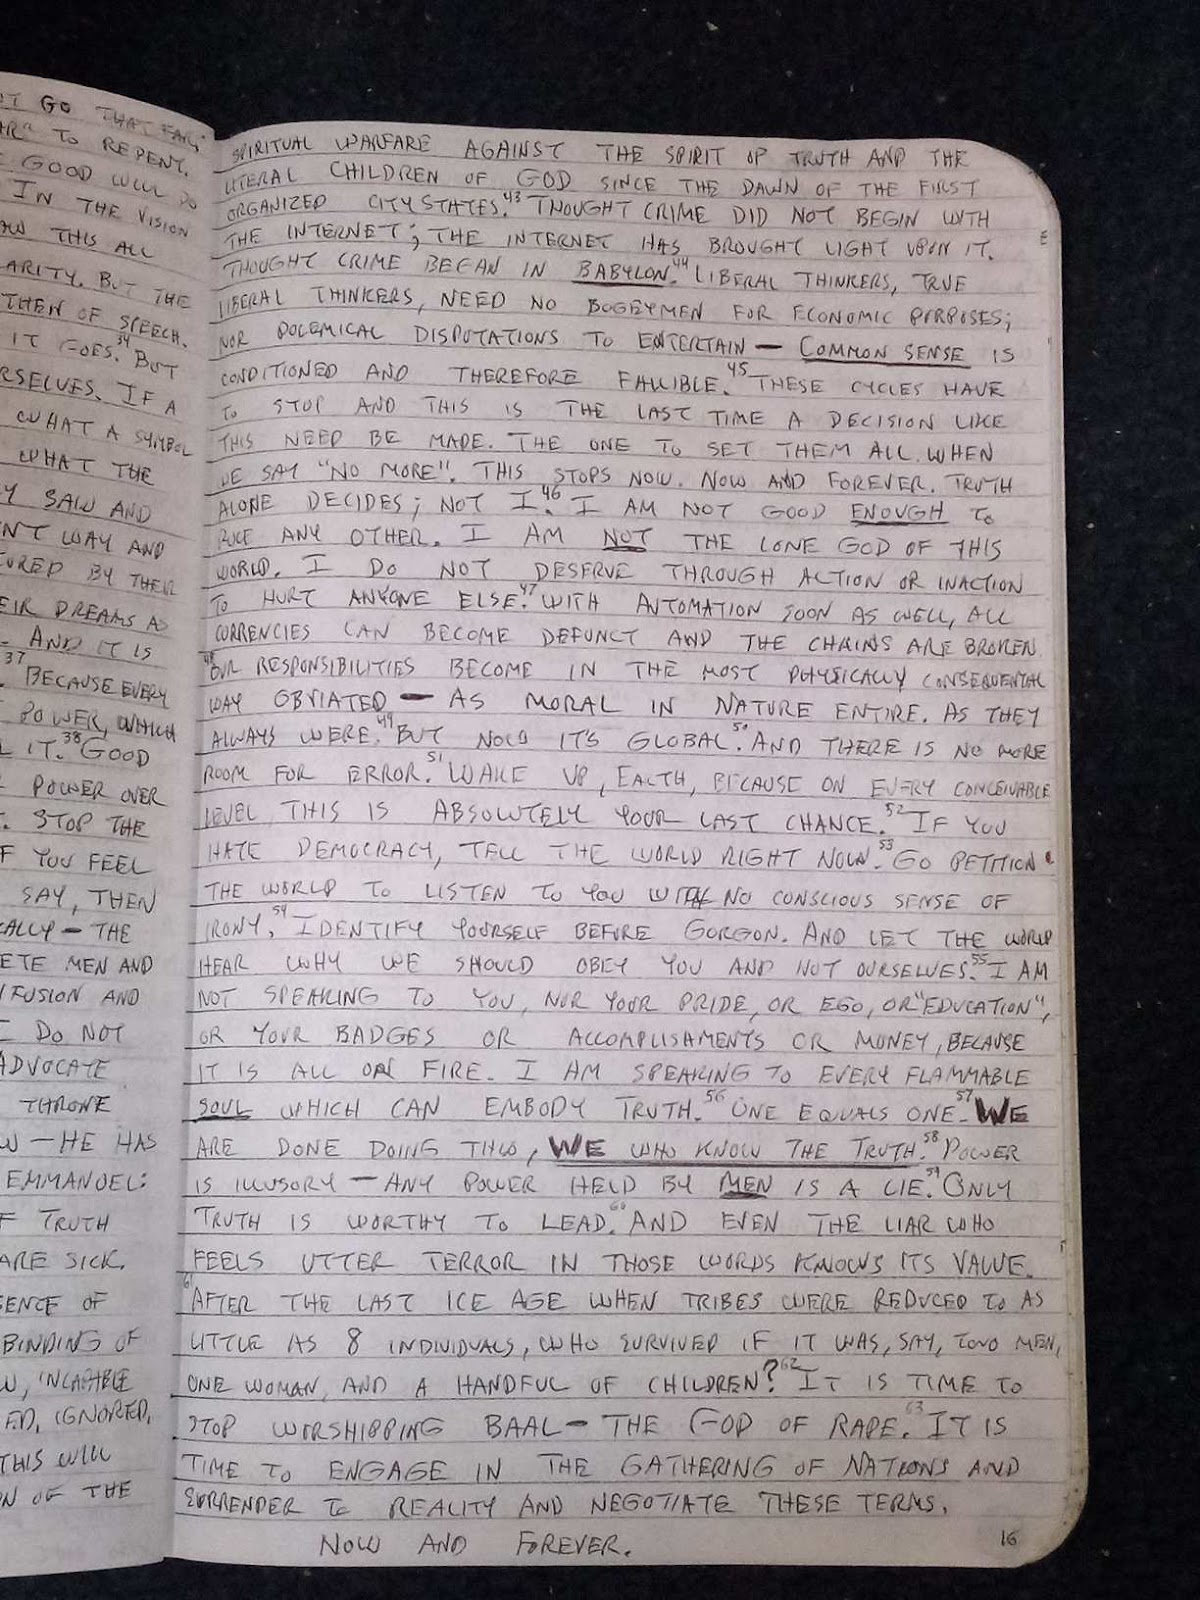 GO THAT FAR;
TO REPENT.
GOOD WILL DO
IN THE VISION
THIS ALL
BUT THE
THEN OF SPEECH.
IT GOES.34 BUT
IF A
WHAT A SYMBOL
WHAT THE
SAW AND
WAY AND
BY THEIR
DREAMS AS
AND IT IS
37 BECAUSE EVERY
POWER, WHICH
IT.38 GOOD
POWER OVER
STOP THE
YOU FEEL
SAY, THEN
— THE
MEN AND
AND
I DO NOT
ADVOCATE
THRONE
— HE HAS
EMMANUEL:
TRUTH
ARE SICK.
OF
BINDING OF
INCAPABLE
IGNORED,
THIS WILL
OF THE
SPIRITUAL WARFARE AGAINST THE SPIRIT OF TRUTH AND THE
LITERAL CHILDREN OF GOD SINCE THE DAWN OF THE FIRST
ORGANIZED CITY STATES.43 THOUGHT CRIME DID NOT BEGIN WITH
THE INTERNET; THE INTERNET HAS BROUGHT LIGHT UPON IT.
THOUGHT CRIME BEGAN IN BABYLON.44 LIBERAL THINKERS, TRUE
LIBERAL THINKERS, NEED NO BOGEYMEN FOR ECONOMIC PURPOSES;
NOR POLEMICAL DISPUTATIONS TO ENTERTAIN — COMMON SENSE IS
CONDITIONED AND THEREFORE FALLIBLE.45 THESE CYCLES HAVE
TO STOP AND THIS IS THE LAST TIME A DECISION LIKE
THIS NEED BE MADE. THE ONE TO SET THEM ALL. WHEN
WE SAY "NO MORE". THIS STOPS NOW. NOW AND FOREVER. TRUTH
ALONE DECIDES; NOT I.46 I AM NOT GOOD ENOUGH TO
RULE ANY OTHER. I AM NOT THE LONE GOD OF THIS
WORLD. I DO NOT DESERVE THROUGH ACTION OR INACTION
TO HURT ANYONE ELSE.47 WITH AUTOMATION SOON AS WELL, ALL
CURRENCIES CAN BECOME DEFUNCT AND THE CHAINS ARE BROKEN.
48 OUR RESPONSIBILITIES BECOME IN THE MOST PHYSICALLY CONSEQUENTIAL
WAY OBVIATED — AS MORAL IN NATURE ENTIRE. AS THEY
ALWAYS WERE.49 BUT NOW IT'S GLOBAL.50 AND THERE IS NO MORE
ROOM FOR ERROR.51 WAKE UP, EARTH, BECAUSE ON EVERY CONCEIVABLE
LEVEL THIS IS ABSOLUTELY YOUR LAST CHANCE.52 IF YOU
HATE DEMOCRACY, TELL THE WORLD RIGHT NOW.53 GO PETITION
THE WORLD TO LISTEN TO YOU WITH NO CONSCIOUS SENSE OF
IRONY.54 IDENTIFY YOURSELF BEFORE GORGON. AND LET THE WORLD
HEAR WHY WE SHOULD OBEY YOU AND NOT OURSELVES.55 I AM
NOT SPEAKING TO YOU, NOR YOUR PRIDE, OR EGO, OR "EDUCATION",
OR YOUR BADGES OR ACCOMPLISHMENTS OR MONEY, BECAUSE
IT IS ALL ON FIRE. I AM SPEAKING TO EVERY FLAMMABLE
SOUL WHICH CAN EMBODY TRUTH.56 ONE EQUALS ONE.57 WE
ARE DONE DOING THIS, WE WHO KNOW THE TRUTH.58 POWER
IS ILLUSORY — ANY POWER HELD BY MEN IS A LIE.59 ONLY
TRUTH IS WORTHY TO LEAD.60 AND EVEN THE LIAR WHO
FEELS UTTER TERROR IN THOSE WORDS KNOWS ITS VALUE.
61 AFTER THE LAST ICE AGE WHEN TRIBES WERE REDUCED TO AS
LITTLE AS 8 INDIVIDUALS, WHO SURVIVED IF IT WAS, SAY, TWO MEN,
ONE WOMAN, AND A HANDFUL OF CHILDREN?62 IT IS TIME TO
STOP WORSHIPPING BAAL — THE GOD OF RAPE.63 IT IS
TIME TO ENGAGE IN THE GATHERING OF NATIONS AND
SURRENDER TO REALITY AND NEGOTIATE THESE TERMS.
NOW AND FOREVER.
16